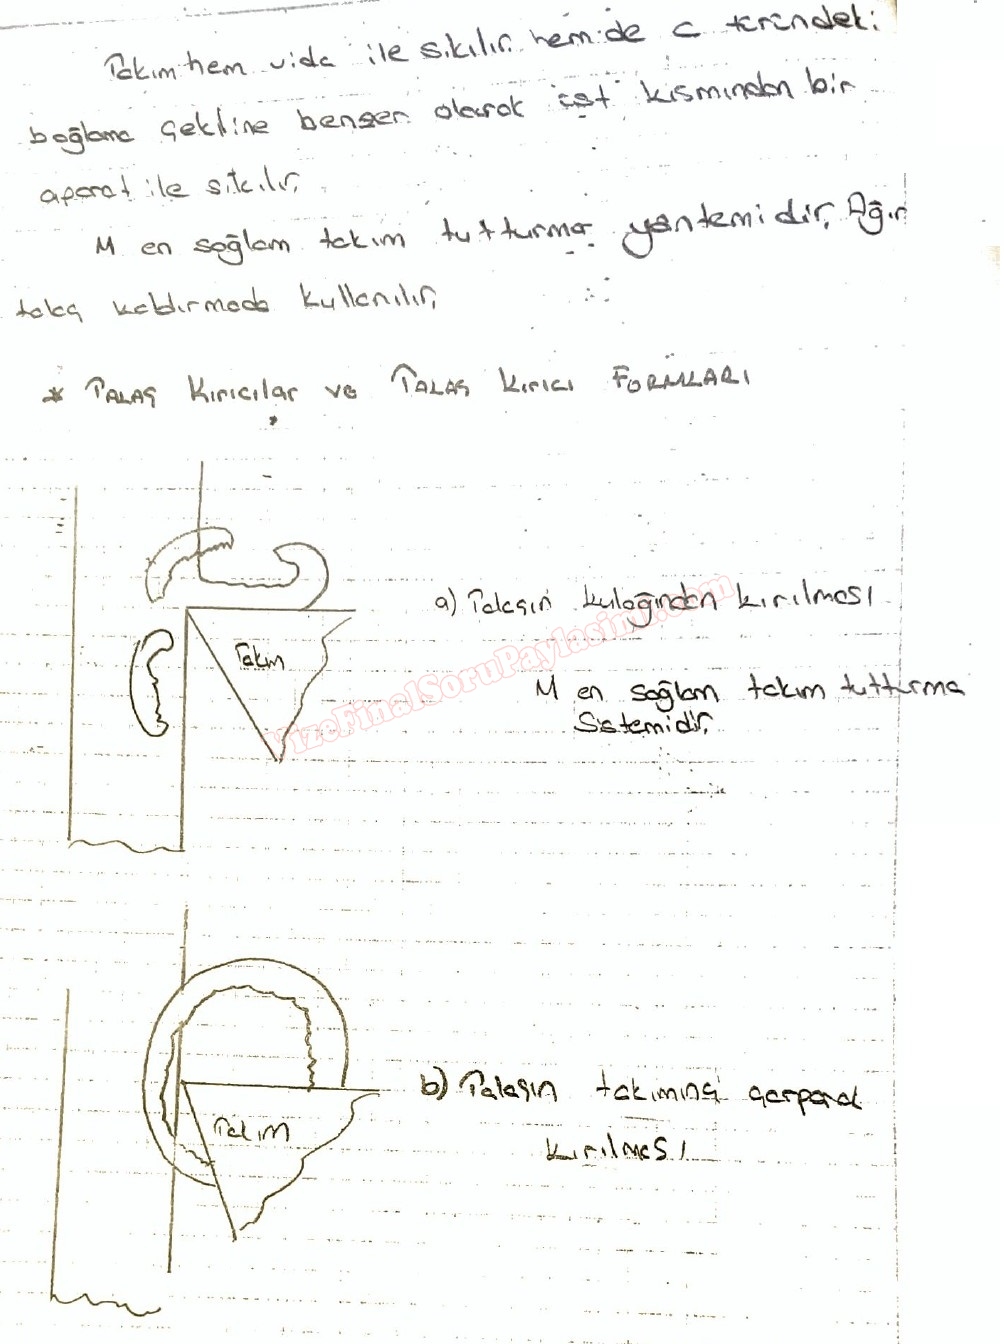 Takım hem vida ile sıkılır hemide C terindeki
bağlama şekline benzer olarak üst kısmından bir
aparat ile sıkılır.
M en sağlam takım tutturma yöntemidir. Ağır
talaş kaldırmada kullanılır.
* TALAŞ Kırıcılar ve TALAŞ Kırıcı FORMLARI
a) Talaşın kulağından kırılması
Takım
M en sağlam takım tutturma
Sistemidir.
VizeFinalSoruPaylasimi.com
b) Talaşın takımına çarparak
Takım
kırılması